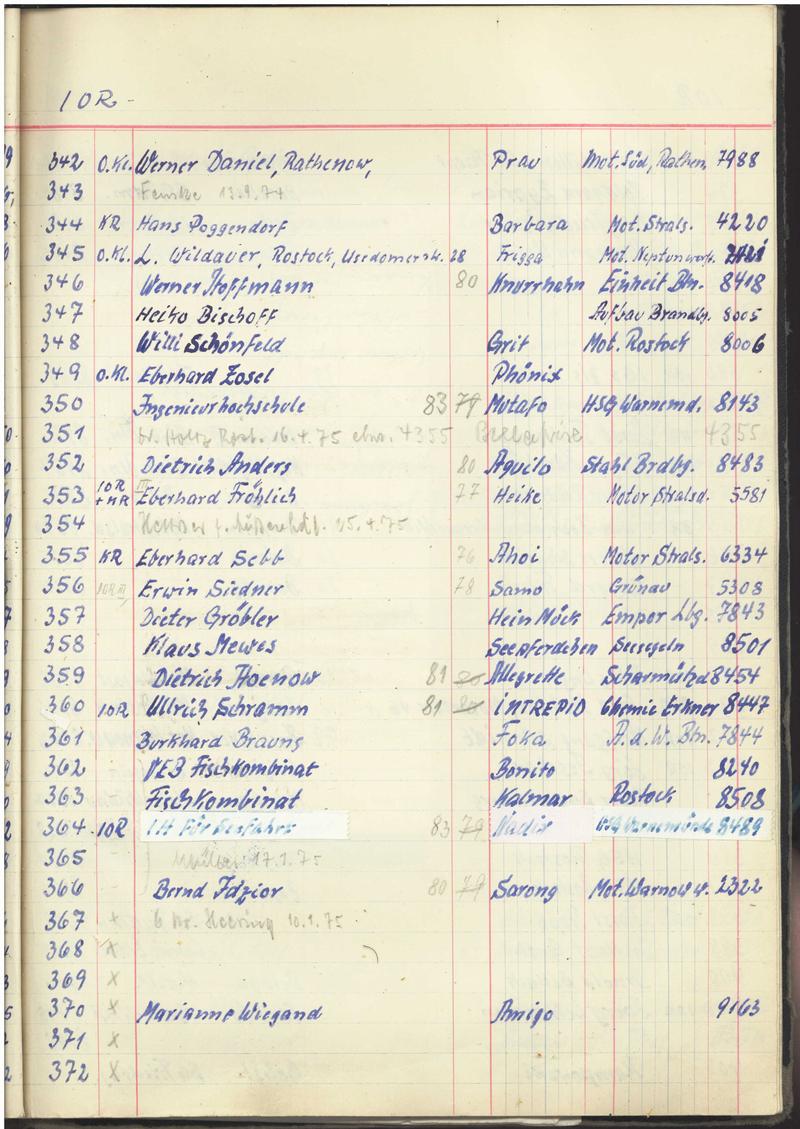 10R -
342 O.Kl. Werner Daniel, Rathenow, Prav Mot. Süd, Rathen. 7988
343 13.9.74
344 KR Hans Poggendorf Barbara Mot. Strals. 4220
345 O.Kl. L. Wildauer, Rostock, Usedomerstr. 28 Frigga Mot. Neptunwerft.
346 Werner Hoffmann 80 Knurrhahn Einheit Bln. 8418
347 Heiko Bischoff Aufbau Brandbg. 8005
348 Willi Schönfeld Grit Mot. Rostock 8006
349 O.Kl. Eberhard Zosel Phönix
350 Ingenieurhochschule 83 79 Mutafo HSG Warnemd. 8143
351 16.4.75 4355 4355
352 Dietrich Anders 80 Aquilo Stahl Brdbg. 8483
353 10R + KR III Eberhard Fröhlich 77 Heike Motor Stralsd. 5581
354 15.4.75
355 KR Eberhard Sebb 76 Ahoi Motor Strals. 6334
356 10R III Erwin Siedner 78 Samo Grünau 5308
357 Dieter Gröbler Hein Mück Empor Lbg. 7843
358 Klaus Mewes Seepferdchen Seesegeln 8501
359 Dietrich Hoenow 81 80 Allegrette Scharmützel 8454
360 10R Ullrich Schramm 81 80 INTREPID Chemie Erkner 8447
361 Burkhard Brauns Foka A.d.W. Bln. 7844
362 VEB Fischkombinat Bonito 8240
363 Fischkombinat Kalmar Rostock 8508
364 10R I.H. Für Seefahrt 83 79 Nadir HSG Warnemünde 8489
365 - Müller 17.1.75
366 - Bernd Idzior 80 79 Sarong Mot. Warnow w. 2322
367 + Heering 10.1.75
368 x
369 x
370 x Marianne Wiegand Amigo 9163
371 x
372 x